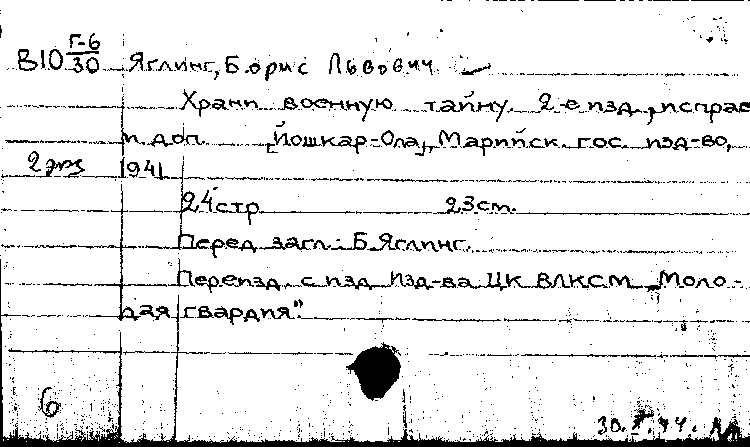 В10 Г-6/30 Яглинг, Борис Львович
Храни военную тайну. 2-е изд., исправ
и доп. [Йошкар-Ола], Марийск. гос. изд-во,
2 экз 1941
24 стр. 23 см.
Перед загл.: Б. Яглинг.
Переизд. с изд. Изд-ва ЦК ВЛКСМ „Моло-
дая гвардия".
6